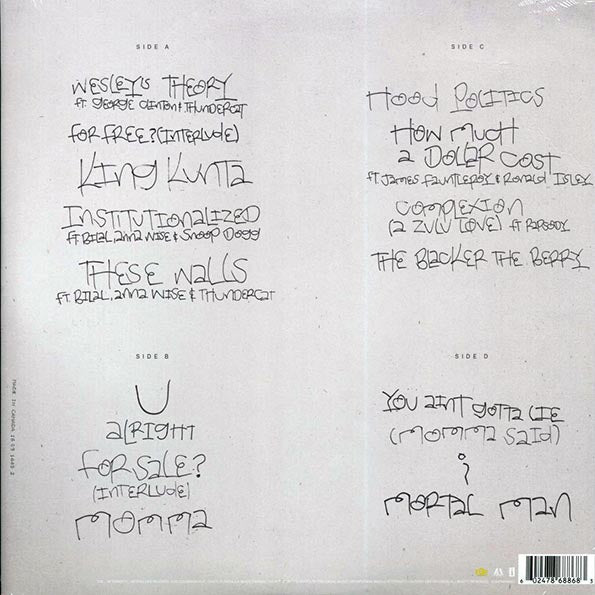 SIDE A
WESLEY'S THEORY
FT. GEORGE CLINTON & THUNDERCAT
FOR FREE? (INTERLUDE)
KING KUNTA
INSTITUTIONALIZED
FT. BILAL, ANNA WISE & SNOOP DOGG
THESE WALLS
FT. BILAL, ANNA WISE & THUNDERCAT
SIDE B
U
ALRIGHT
FOR SALE?
(INTERLUDE)
MOMMA
SIDE C
HOOD POLITICS
HOW MUCH
A DOLLAR COST
FT. JAMES FAUNTLEROY & RONALD ISLEY
COMPLEXION
(A ZULU LOVE) FT RAPSODY
THE BLACKER THE BERRY
SIDE D
YOU AINT GOTTA LIE
(MOMMA SAID)
i
MORTAL MAN
MADE IN CANADA
6 02478 68868 3